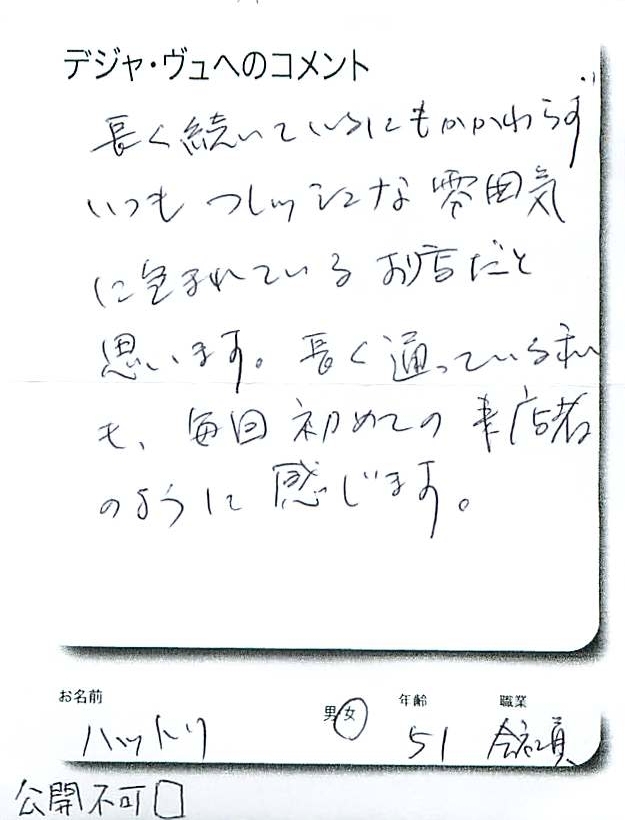 デジャ・ヴュへのコメント
長く続いているにもかかわらず
いつもフレッシュな雰囲気
に包まれているお店だと
思います。長く通っている私
も、毎回初めての来店者
のように感じます。
お名前
男女
年齢
職業
ハットリ
51
会社員
公開不可□